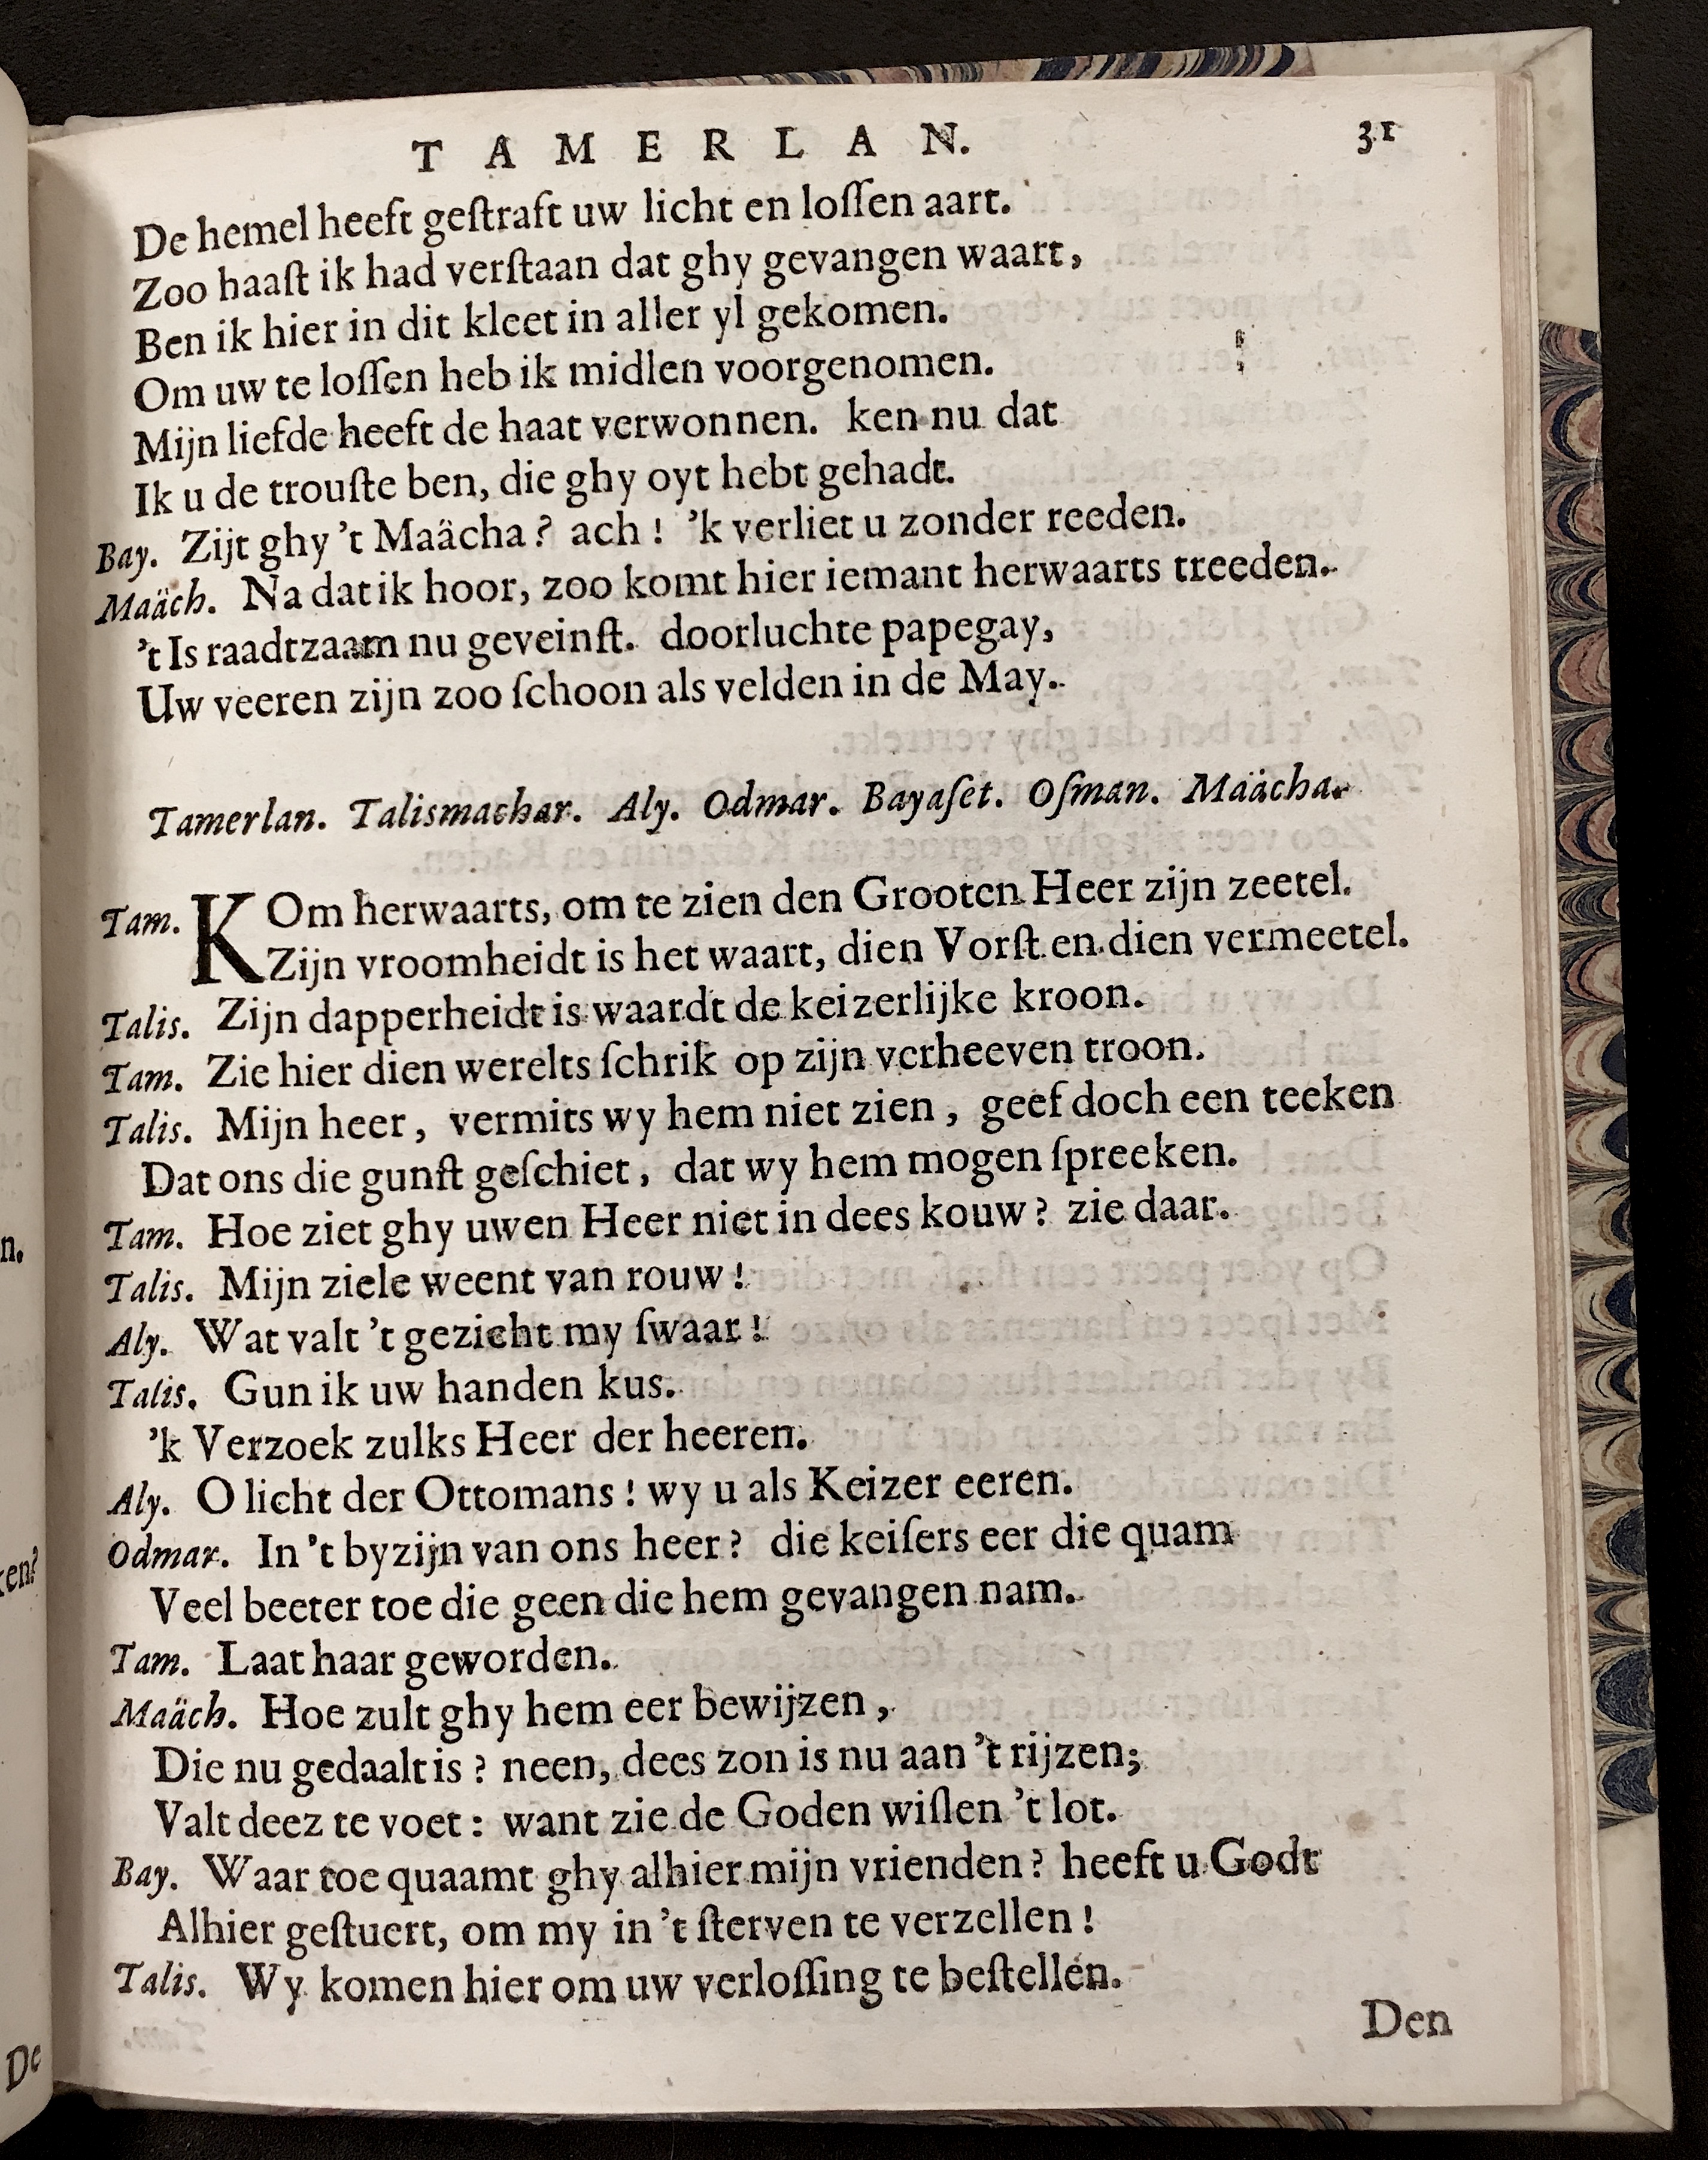 TAMERLAN. 31
De hemel heeft geſtraft uw licht en loſſen aart.
Zoo haaſt ik had verſtaan dat ghy gevangen waart,
Ben ik hier in dit kleet in aller yl gekomen.
Om uw te loſſen heb ik midlen voorgenomen.
Mijn liefde heeft de haat verwonnen. ken nu dat
Ik u de trouſte ben, die ghy oyt hebt gehadt.
Bay. Zijt ghy 't Maächa? ach! 'k verliet u zonder reeden.
Maäch. Na dat ik hoor, zoo komt hier iemant herwaarts treeden.
't Is raadtzaam nu geveinſt. doorluchte papegay,
Uw veeren zijn zoo ſchoon als velden in de May.
Tamerlan. Talismachar. Aly. Odmar. Bayaſet. Oſman. Maächa.
Tam. KOm herwaarts, om te zien den Grooten Heer zijn zeetel.
Zijn vroomheidt is het waart, dien Vorſt en dien vermeetel.
Talis. Zijn dapperheidt is waardt de keizerlijke kroon.
Tam. Zie hier dien werelts ſchrik op zijn verheeven troon.
Talis. Mijn heer, vermits wy hem niet zien, geef doch een teeken
Dat ons die gunſt geſchiet, dat wy hem mogen ſpreeken.
Tam. Hoe ziet ghy uwen Heer niet in dees kouw? zie daar.
Talis. Mijn ziele weent van rouw!
Aly. Wat valt 't gezicht my ſwaar!
Talis. Gun ik uw handen kus.
'k Verzoek zulks Heer der heeren.
Aly. O licht der Ottomans! wy u als Keizer eeren.
Odmar. In 't byzijn van ons heer? die keiſers eer die quam
Veel beeter toe die geen die hem gevangen nam.
Tam. Laat haar geworden.
Maäch. Hoe zult ghy hem eer bewijzen,
Die nu gedaalt is? neen, dees zon is nu aan 't rijzen;
Valt deez te voet: want zie de Goden wiſlen 't lot.
Bay. Waar toe quaamt ghy alhier mijn vrienden? heeft u Godt
Alhier geſtuert, om my in 't ſterven te verzellen!
Talis. Wy komen hier om uw verloſſing te beſtellen.
Den
n.
ken?
De